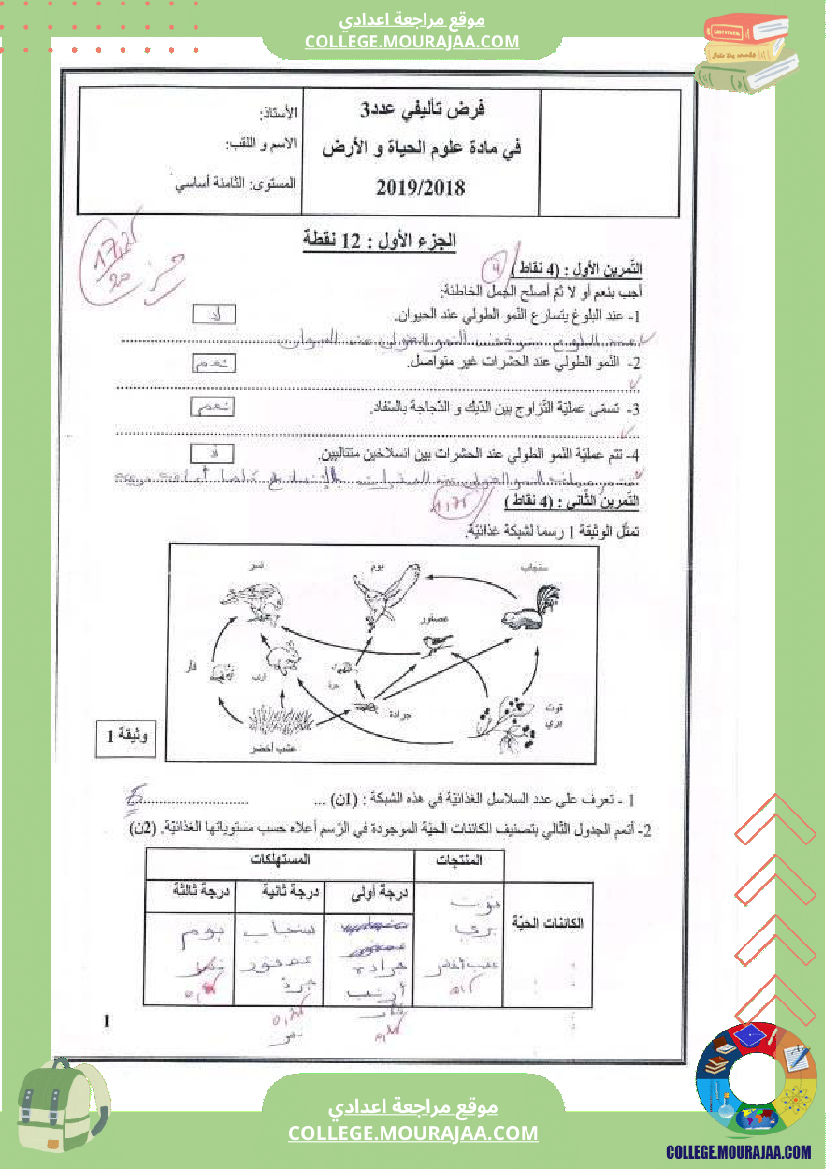 موقع مراجعة اعدادي
COLLEGE.MOURAJAA.COM
فرض تأليفي عدد3
في مادة علوم الحياة و الأرض
2019/2018
الأستاذ:
الاسم و اللقب:
المستوى: الثامنة أساسي
الجزء الأول : 12 نقطة
20
التمرين الأول : (4 نقاط)
4
أجب بنعم أو لا ثمّ أصلح الجمل الخاطئة:
1- عند البلوغ يتسارع النمو الطولي عند الحيوان.
لا
عند البلوغ يتوقف النمو الطولي عند الحيوان
2- النّمو الطولي عند الحشرات غير متواصل.
نعم
3- تسمّى عمليّة التّزاوج بين الدّيك و الدّجاجة بالسّفاد.
نعم
4- تتم عمليّة النّمو الطولي عند الحشرات بين انسلاخين متتاليين.
لا
التّمرين الثّاني : (4 نقاط)
1,75
تمثّل الوثيقة 1 رسما لشبكة غذائيّة.
نسر
بوم
سنجاب
عصفور
فأر
أرنب
جرذ
جرادة
توت بري
عشب أخضر
وثيقة 1
1 - تعرف على عدد السلاسل الغذائيّة في هذه الشبكة : (1ن) ...
2- أتمم الجدول التّالي بتصنيف الكائنات الحيّة الموجودة في الرّسم أعلاه حسب مستوياتها الغذائيّة. (2ن)
المنتجات
المستهلكات
درجة أولى
درجة ثانية
درجة ثالثة
الكائنات الحيّة
توت
بري
عشب أخضر
جرادة
أرنب
فأر
سنجاب
عصفور
جرذ
بوم
نسر
1
موقع مراجعة اعدادي
COLLEGE.MOURAJAA.COM
COLLEGE.MOURAJAA.COM